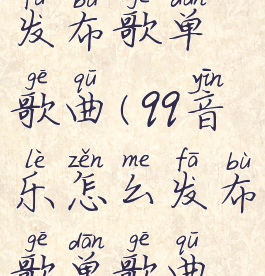 fā bù gē dān
发布歌单
gē qū yīn
歌曲(99音
lè zěn me fā bù
乐怎么发布
gē dān gē qū
歌单歌曲